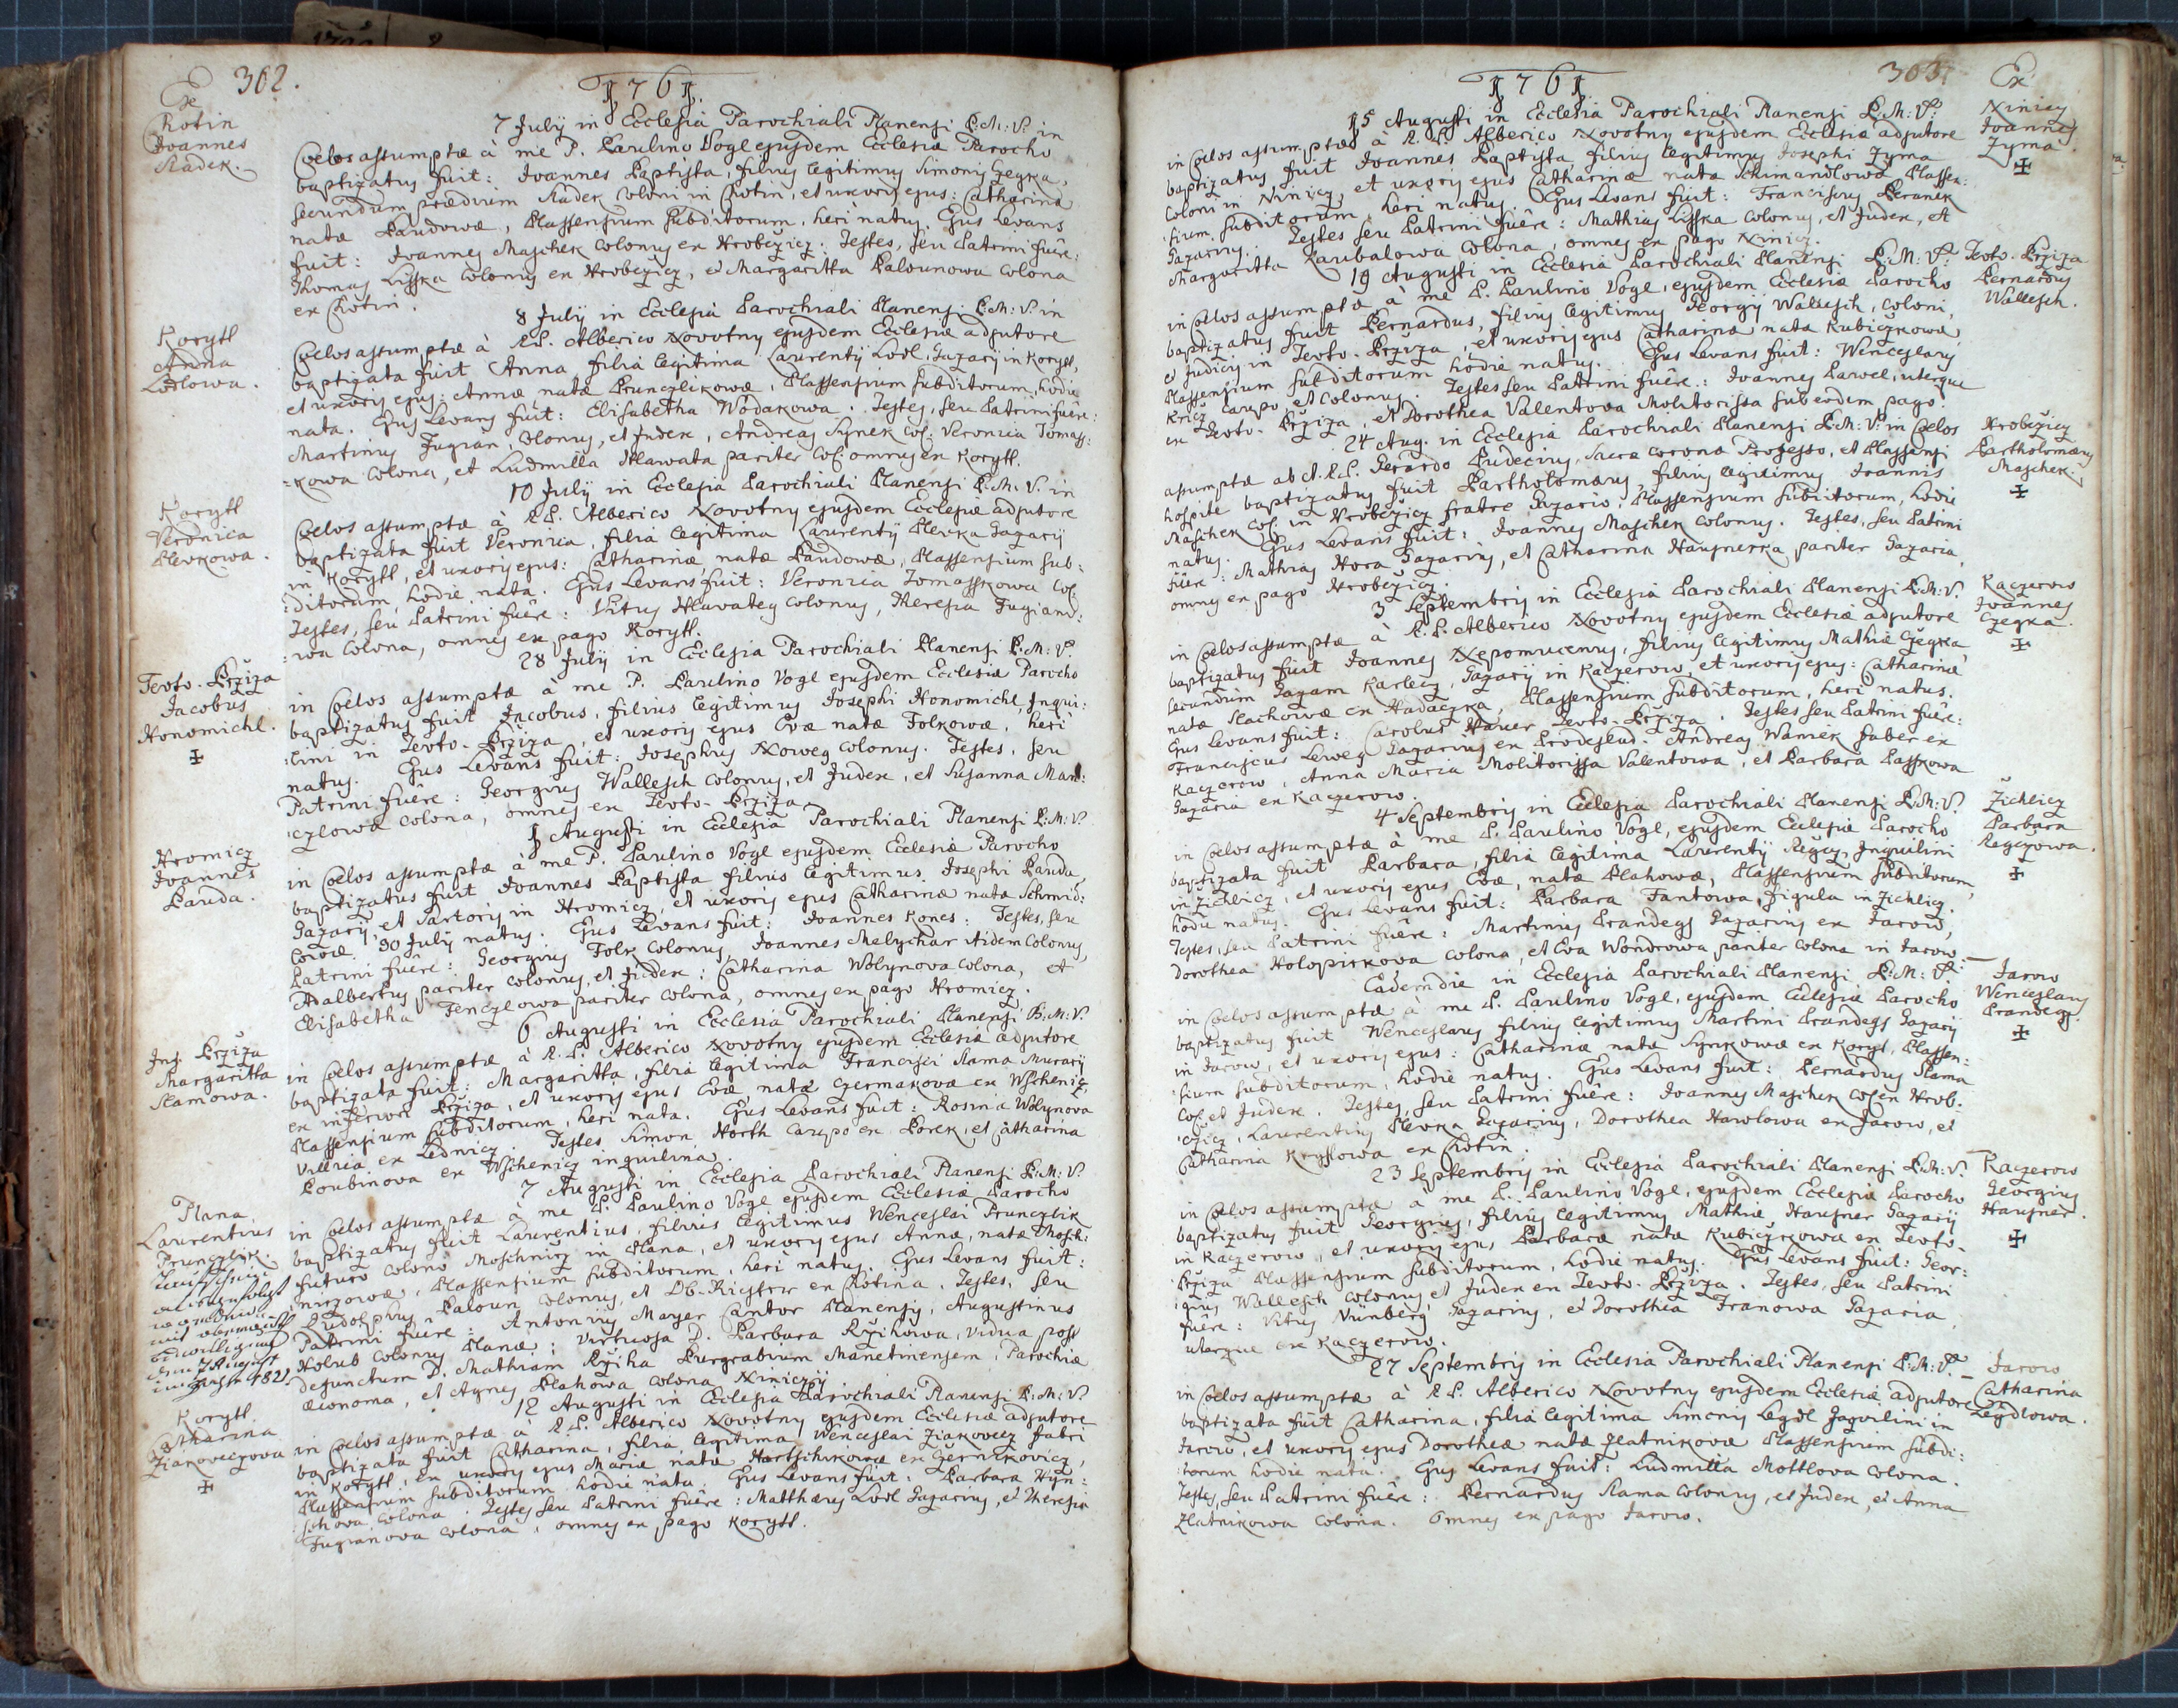 302.
1761.
Ex
Chotin
Joannes
Radek.
7 Julij in Ecclesia Parochiali Planensi B:M:V. in
Coelos assumptæ à me P. Paulino Vogl ejusdem Ecclesiæ Parocho
baptizatus fuit: Joannes Baptista, filius legitimus Simonis Czegka,
secundum prædium Radek Coloni in Chotin, et uxoris ejus: Catharina
natæ Paudowæ, Plassensium subditorum, heri natus. Eius Levans
fuit: Joannes Maschek Colonus ex Hrobczicz: Testes, seu Patrini fuêre:
Thomas Lisska Colonus ex Hrobczicz, et Margaritta Palounowa Colona
ex Chotin.
Korytt
Anna
Lodlowa.
8 Julij in Ecclesia Parochiali Planensi B:M:V. in
Coelos assumptæ à R.P. Alberico Novotny ejusdem Ecclesiæ adjutore
baptizata fuit Anna filia legitima Laurentij Lodl, Gazarij in Korytt,
et uxoris ejus: Annæ natæ Prunczlikowæ, Plassensium subditorum, hodie
nata. Eius Levans fuit: Elisabetha Wodakowa. Testes, seu Patrini fuêre:
Martinus Jugian, Colonus, et Judex, Andreas Synek Col: Veronica Tomass:
=kowa Colona, et Ludmilla Hlawata pariter Col: omnes ex Korytt.
Korytt
Veronica
Plevkowa.
10 Julij in Ecclesia Parochiali Planensi B:M:V. in
Coelos assumptæ à R.P. Alberico Novotny ejusdem Ecclesiæ adjutore
baptizata fuit Veronica, filia legitima Laurentij Plevka Gazarij
in Korytt, et uxoris ejus: Catharinæ, natæ Paudowæ, Plassensium sub:
:ditorum, hodie nata. Eius Levans fuit: Veronica Tomasskowa Col:
Testes, seu Patrini fuêre: Vitus Hlawateg Colonus, Theresia Jugiano:
:wa Colona, omnes ex pago Korytt.
Tevto-Brziza
Jacobus
Honomichl.
28 Julij in Ecclesia Parochiali Planensi B:M:V.
in Coelos assumptæ à me P. Paulino Vogl ejusdem Ecclesiæ Parocho
baptizatus fuit Jacobus, filius legitimus Josephi Honomichl, Inqui:
:lini in Tevto-Brziza, et uxoris ejus Evæ natæ Folkowæ, heri
natus. Eius Levans fuit: Josephus Noweg Colonus. Testes, seu
Patrini fuêre: Georgius Wallesch Colonus, et Judex, et Susanna Man:
:czlowa Colona, omnes ex Tevto-Brziza.
Hromicz
Joannes
Pauda.
1 Augusti in Ecclesia Parochiali Planensi B:M:V.
in Coelos assumptæ à me P. Paulino Vogl ejusdem Ecclesiæ Parocho
baptizatus fuit Joannes Baptista filius legitimus Josephi Pauda,
Gazarij, et Sartoris in Hromicz, et uxoris ejus Catharinæ natæ Schmid:
:lowæ 30 Julij natus. Eius Levans fuit: Joannes Kones: Testes, seu
Patrini fuêre: Georgius Folk Colonus, Joannes Melichar itidem Colonus,
Adalbertus pariter Colonus, et Judex: Catharina Wolynova Colona, et
Elisabetha Fenczlowa pariter Colona, omnes ex pago Hromicz.
Inf. Brziza
Margaritta
Slamowa.
6 Augusti in Ecclesia Parochiali Planensi B:M:V.
in Coelos assumptæ à R.P. Alberico Novotny ejusdem Ecclesiæ adjutore
baptizata fuit: Margaritta, filia legitima Francisci Slama Murarij
ex inferiori Brziza, et uxoris ejus Evæ, natæ Czermakowæ ex Wschenicz,
Plassensium subditorum, heri nata. Eius Levans fuit: Rosina Wolynova
Villica ex Lednicz. Testes Simon Horth Caupo ex Borek, et Catharina
Loubinova ex Wschenicz inquilina.
Plana
Laurentius
Prunczlik.
7 Augusti in Ecclesia Parochiali Planensi B:M:V.
in Coelos assumptæ à me P. Paulino Vogl ejusdem Ecclesiæ Parocho
baptizatus fuit Laurentius, filius legitimus Wenceslai Prunczlik
futuro Colono Moschnicz in Plana, et uxoris ejus Annæ, natæ Mosch:
:niczowæ, Plassensium subditorum, heri natus. Eius Levans fuit:
Rudolphus Paloun, Colonus, et Ob-Richter ex Chotina. Testes, seu
Patrini fuêre: Antonius Mayer Cantor Planensis, Augustinus
Holub Colonus Planæ: Virtuosa D. Barbara Rzihowa, vidua post
defunctum D. Mathiam Rziha Burgrabium Manetinensem, Parochiæ
œconoma, et Agnes Plahowa Colona Niniczij.
Korytt
Catharina
Ziakoveczowa
12 Augusti in Ecclesia Parochiali Planensi B:M:V.
in Coelos assumptæ à R.P. Alberico Novotny ejusdem Ecclesiæ adjutore
baptizata fuit Catharina, filia legitima Wenceslai Ziakovecz Fabri
in Korytt, ex uxoris ejus Mariæ natæ Hartschikowæ ex Czernikovicz,
Plassensium subditorum hodie nata. Eius Levans fuit: Barbara Hyn:
:schova Colona. Testes seu Patrini fuêre: Matthæus Lodl Gazarius, et Theresia
Jugianova Colona, omnes ex pago Korytt.
1761
303.
Ex
Niniczy
Joannes
Zyma.
15 Augusti in Ecclesia Parochiali Planensi B:M:V.
in Coelos assumptæ à R.P. Alberico Novotny ejusdem Ecclesiæ adjutore
baptizatus fuit Joannes Baptista, filius legitimus Josephi Zyma
Coloni in Niniczy, et uxoris ejus Catharinæ natæ Schimandlowæ Plassen:
:sium subditorum, heri natus. Eius Levans fuit: Franciscus Beranek
Gazarius. Testes seu Patrini fuêre: Mathias Lisska Colonus, et Judex, et
Margaritta Karibalowa Colona, omnes ex pago Ninicz.
Tevto-Brziza
Bernardus
Wallesch.
19 Augusti in Ecclesia Parochiali Planensi B:M:V.
in Coelos assumptæ à me P. Paulino Vogl, ejusdem Ecclesiæ Parocho
baptizatus fuit Bernardus, filius legitimus Georgij Wallesch, Coloni,
et Judicis in Tevto-Brziza, et uxoris ejus Catharinæ natæ Kubiczkowæ,
Plassensium subditorum hodie natus. Eius Levans fuit: Wenceslaus
Kricz Caupo, et Colonus. Testes seu Patrini fuêre: Joannes Pawel, uterque
ex Tevto-Brziza, et Dorothea Valentova Molitorissa sub eodem pago.
Hrobczicz
Bartholomæus
Maschek.
24 Aug. in Ecclesia Parochiali Planensi B:M:V: in Coelos
assumptæ ab A.R.P. Gerardo Budecius, Sacræ Coronæ Professo, et Plassensi
hospite baptizatus fuit Bartholomæus, filius legitimus Joannis
Maschek Col: in Hrobczicz fratre Gazario, Plassensium subditorum, hodie
natus. Eius Levans fuit: Joannes Maschek Colonus. Testes, seu Patrini
fuêre: Mathias Hora Gazarius, et Catharina Hausnerka, pariter Gazaria,
omnes ex pago Hrobczicz.
Kaczerow
Joannes
Czegka.
3 Septembris in Ecclesia Parochiali Planensi B:M:V.
in Coelos assumptæ à R.P. Alberico Novotny ejusdem Ecclesiæ adjutore
baptizatus fuit Joannes Nepomucenus, filius legitimus Mathiæ Czegka
secundum Gazam Karlecz, Gazarij in Kaczerow, et uxoris ejus: Catharinæ
natæ Slachowæ ex Hadaczka, Plassensium subditorum, heri natus.
Eius Levans fuit: Carolus Hauer Tevto-Brziza. Testes seu Patrini fuêre:
Franciscus Lewey Gazarius ex Brodeslad. Andreas Waniek faber ex
Kaczerow, Anna Maria Molitorissa Valentowa, et Barbara Passkowa
Gazaria ex Kaczerow.
Zichlicz
Barbara
Regczowa.
4 Septembris in Ecclesia Parochiali Planensi B:M:V.
in Coelos assumptæ à me P. Paulino Vogl, ejusdem Ecclesiæ Parocho
baptizata fuit Barbara, filia legitima Laurentij Regcz, Inquilini
in Zichlicz, et uxoris ejus Evæ, natæ Blahowæ, Plassensium subditorum,
hodie natus. Eius Levans fuit: Barbara Fantowa, figula in Zichlicz.
Testes, seu Patrini fuêre: Martinus Brandegs Gazarius ex Jarow,
Dorothea Holopirkova Colona, et Eva Wondrowa pariter Colona in Jarow.
Jarow
Wenceslaus
Brandegs.
Eadem die in Ecclesia Parochiali Planensi B:M:V.
in Coelos assumptæ à me P. Paulino Vogl, ejusdem Ecclesiæ Parocho
baptizatus fuit Wenceslaus filius legitimus Martini Brandegs Gazarij
in Jarow, et uxoris ejus: Catharinæ natæ Synkowæ ex Koryt, Plassen:
:sium subditorum, hodie natus. Eius Levans fuit: Bernardus Slama
Col: et Judex. Testes, seu Patrini fuêre: Joannes Maschek Col: ex Hrob:
:czicz, Laurentius Plevka Gazarius, Dorothea Hawlowa ex Jarow, et
Catharina Kreysowa ex Chotin.
Kaczerow
Georgius
Hausner.
23 Septembris in Ecclesia Parochiali Planensi B:M:V.
in Coelos assumptæ à me P. Paulino Vogl, ejusdem Ecclesiæ Parocho
baptizatus fuit Georgius, filius legitimus Mathiæ Hausner Gazarij
in Kaczerow, et uxoris ejus Barbaræ natæ Kubiczkowa ex Tevto-
Brziza Plassensium subditorum, hodie natus. Eius Levans fuit: Geor:
:gius Wallesch Colonus et Judex ex Tevto-Brziza. Testes, seu Patrini
fuêre: Vitus Nürnberg Gazarius, et Dorothea Franowa Gazaria,
uterque ex Kaczerow.
Jarow
Catharina
Legdlowa.
27 Septembris in Ecclesia Parochiali Planensi B:M:V.
in Coelos assumptæ à R.P. Alberico Novotny ejusdem Ecclesiæ adjutore
baptizata fuit Catharina, filia legitima Simonis Legdl Inquilini in
Jarow, et uxoris ejus Dorotheæ natæ Zlatnikovæ Plassensium subdi:
:torum hodie nata. Eius Levans fuit: Ludmilla Mottlova Colona.
Testes, seu Patrini fuêre: Bernardus Slama Colonus, et Judex, et Anna
Zlatnikowa Colona. Omnes ex pago Jarow.